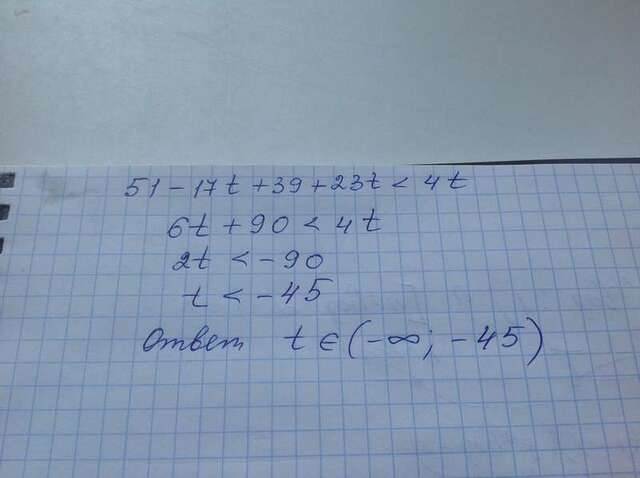 51 - 17t + 39 + 23t < 4t
6t + 90 < 4t
2t < - 90
t < - 45
Ответ t ∈ (-∞; -45)